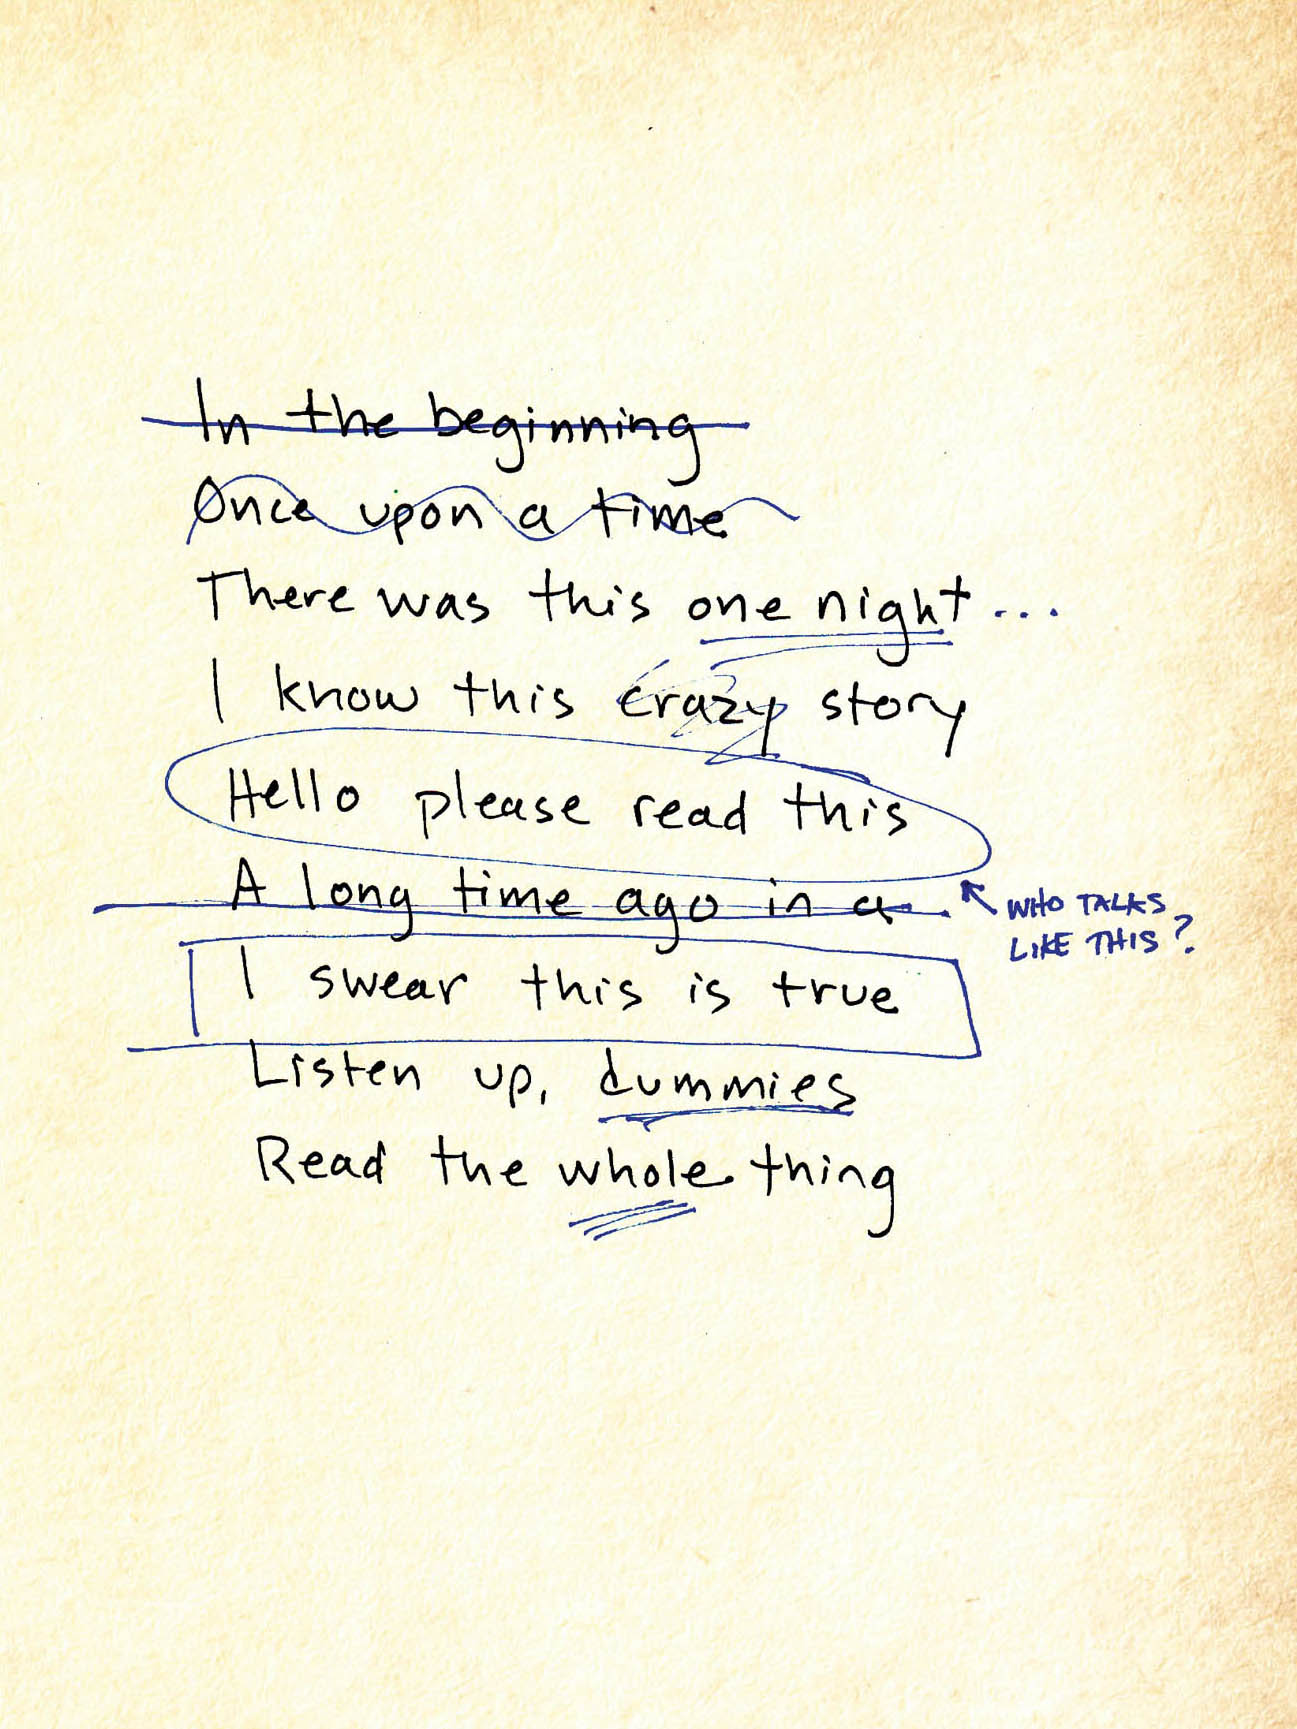 In the beginning
Once upon a time
There was this one night...
I know this crazy story
Hello please read this
A long time ago in a
WHO TALKS
LIKE THIS?
I swear this is true
Listen up, dummies
Read the whole thing